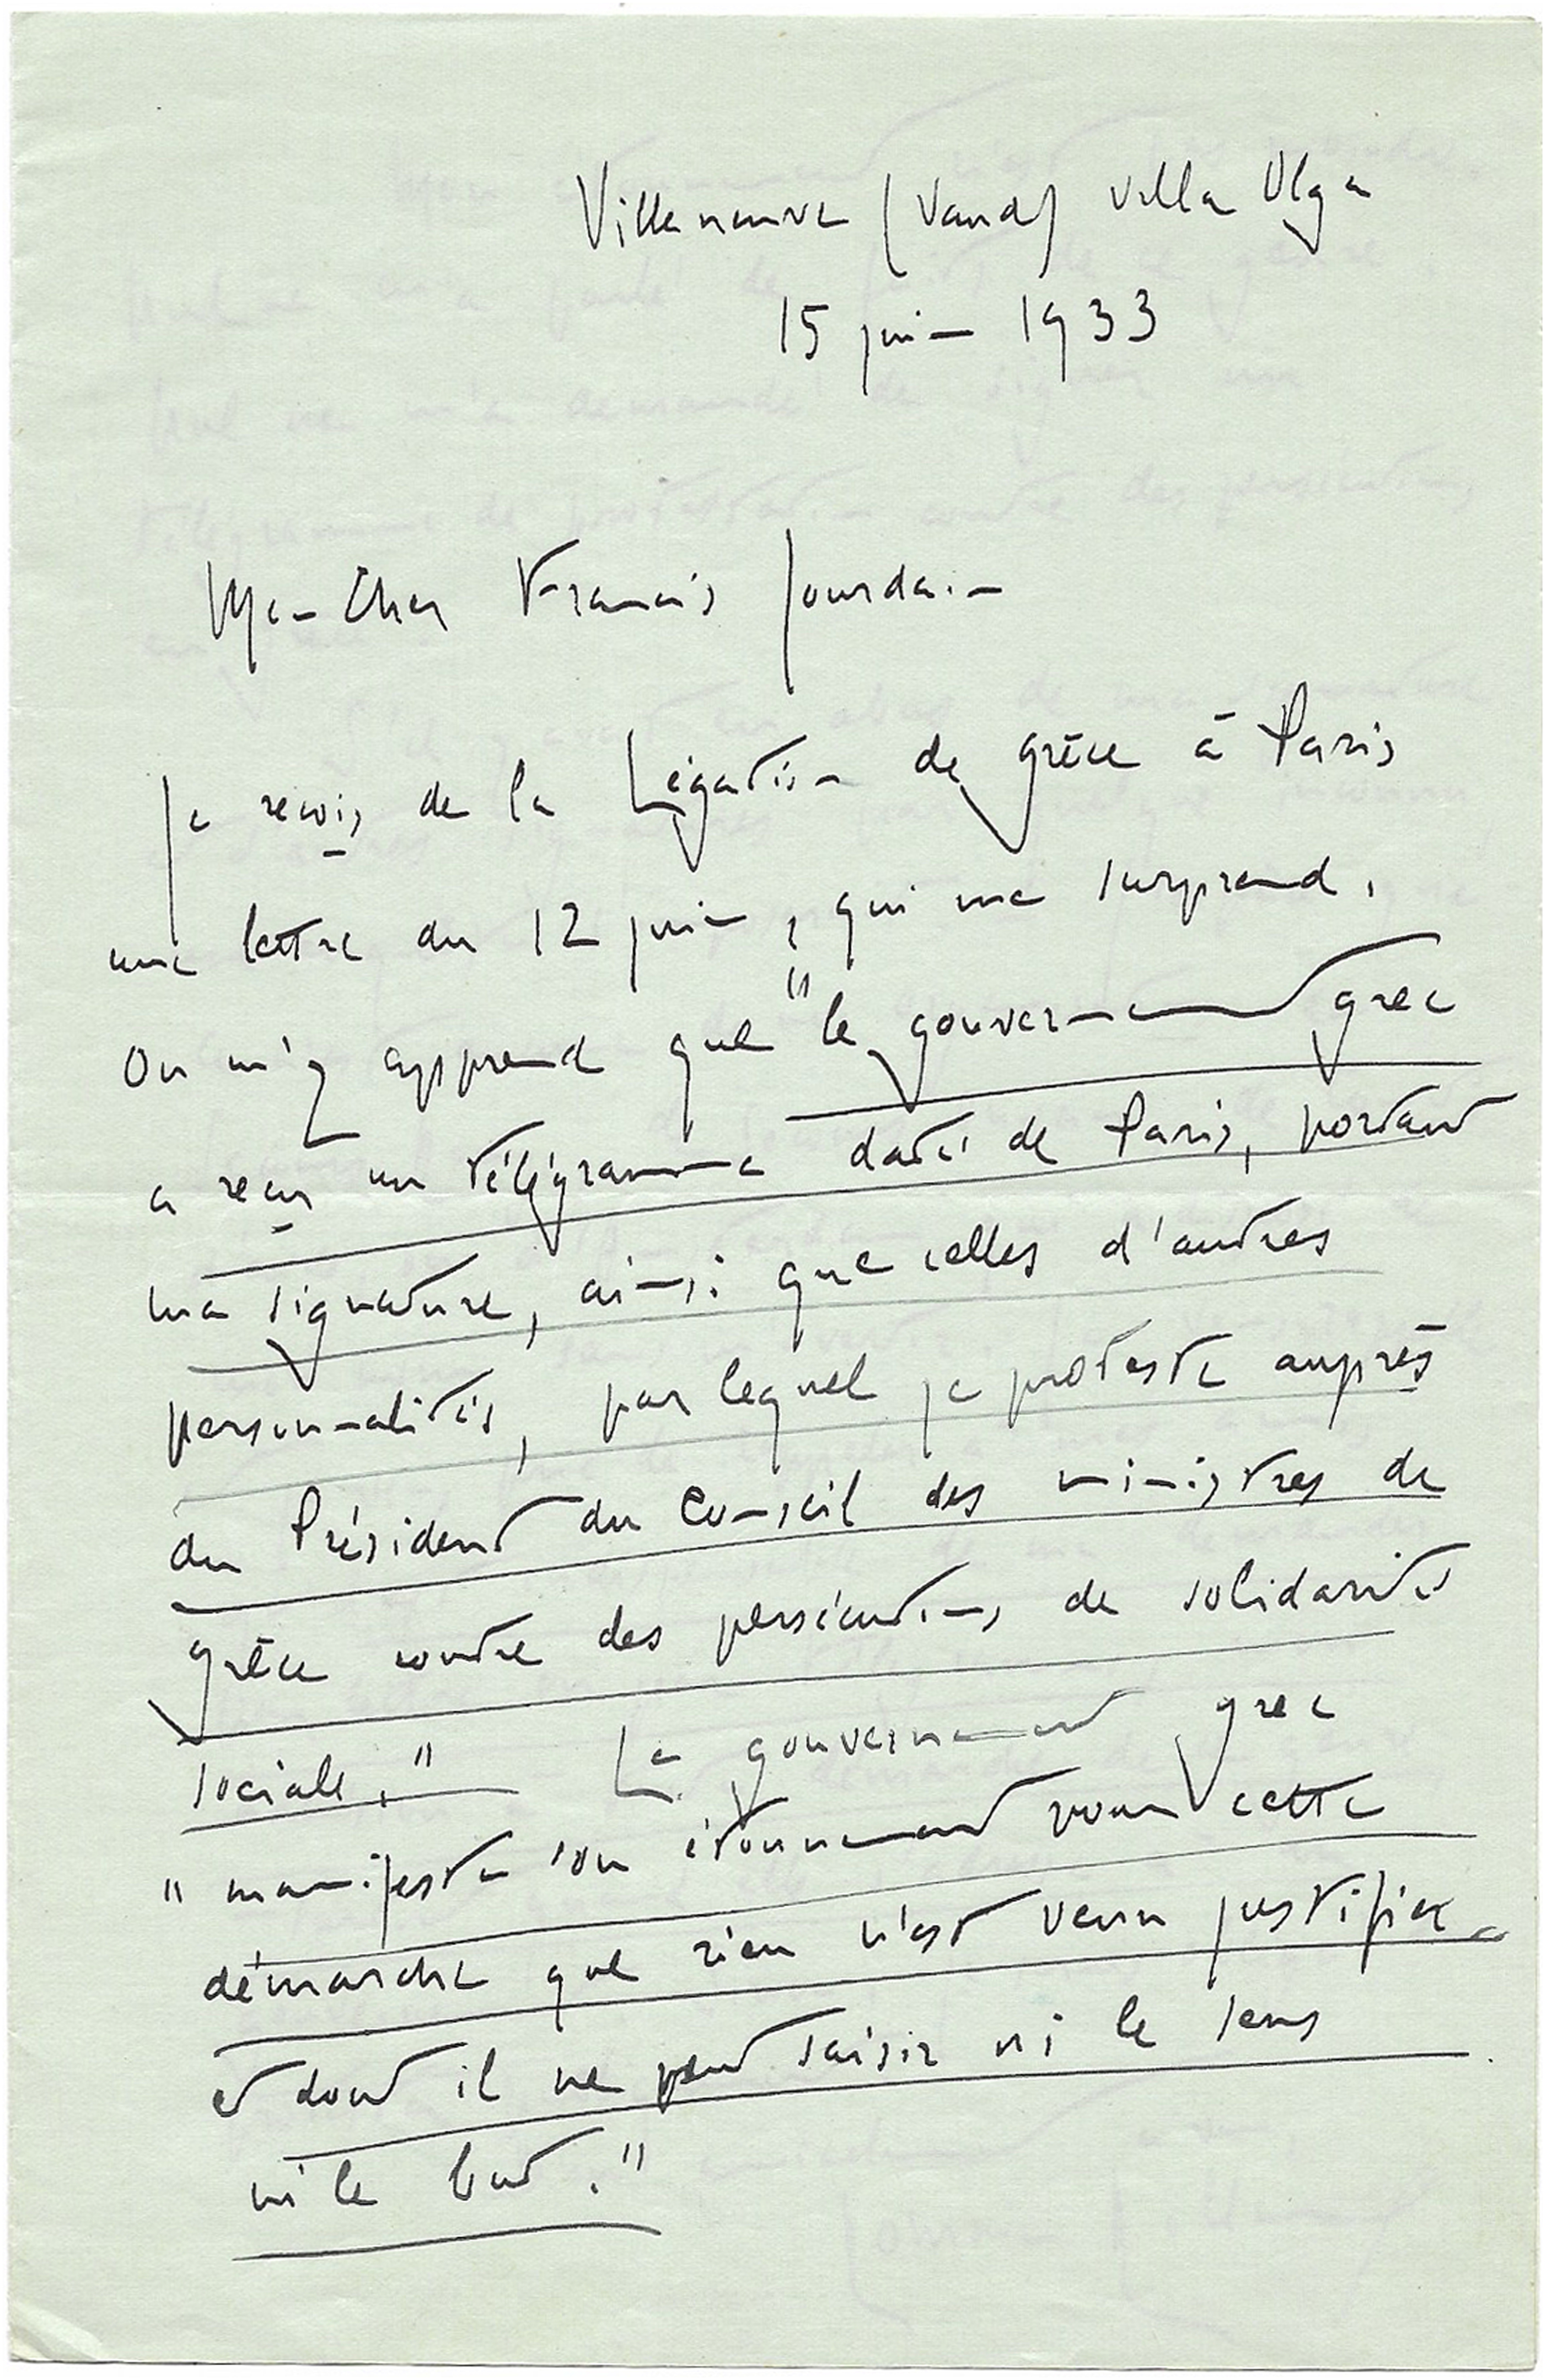 Villeneuve (Vaud) villa Olga
15 juin 1933
Mon cher Francis Jourdain
Je reçois de la Légation de Grèce à Paris
une lettre du 12 juin, qui me surprend.
On m'y apprend que "le gouvernement grec
a reçu un télégramme daté de Paris, portant
ma signature, ainsi que celles d'autres
personnalités, par lequel je proteste auprès
du Président du Conseil des ministres de
Grèce contre des persécutions de solidarité
sociale." Le gouvernement grec
"manifeste son étonnement pour cette
démarche que rien n'est venu justifier
et dont il ne peut saisir ni le sens
ni le but."